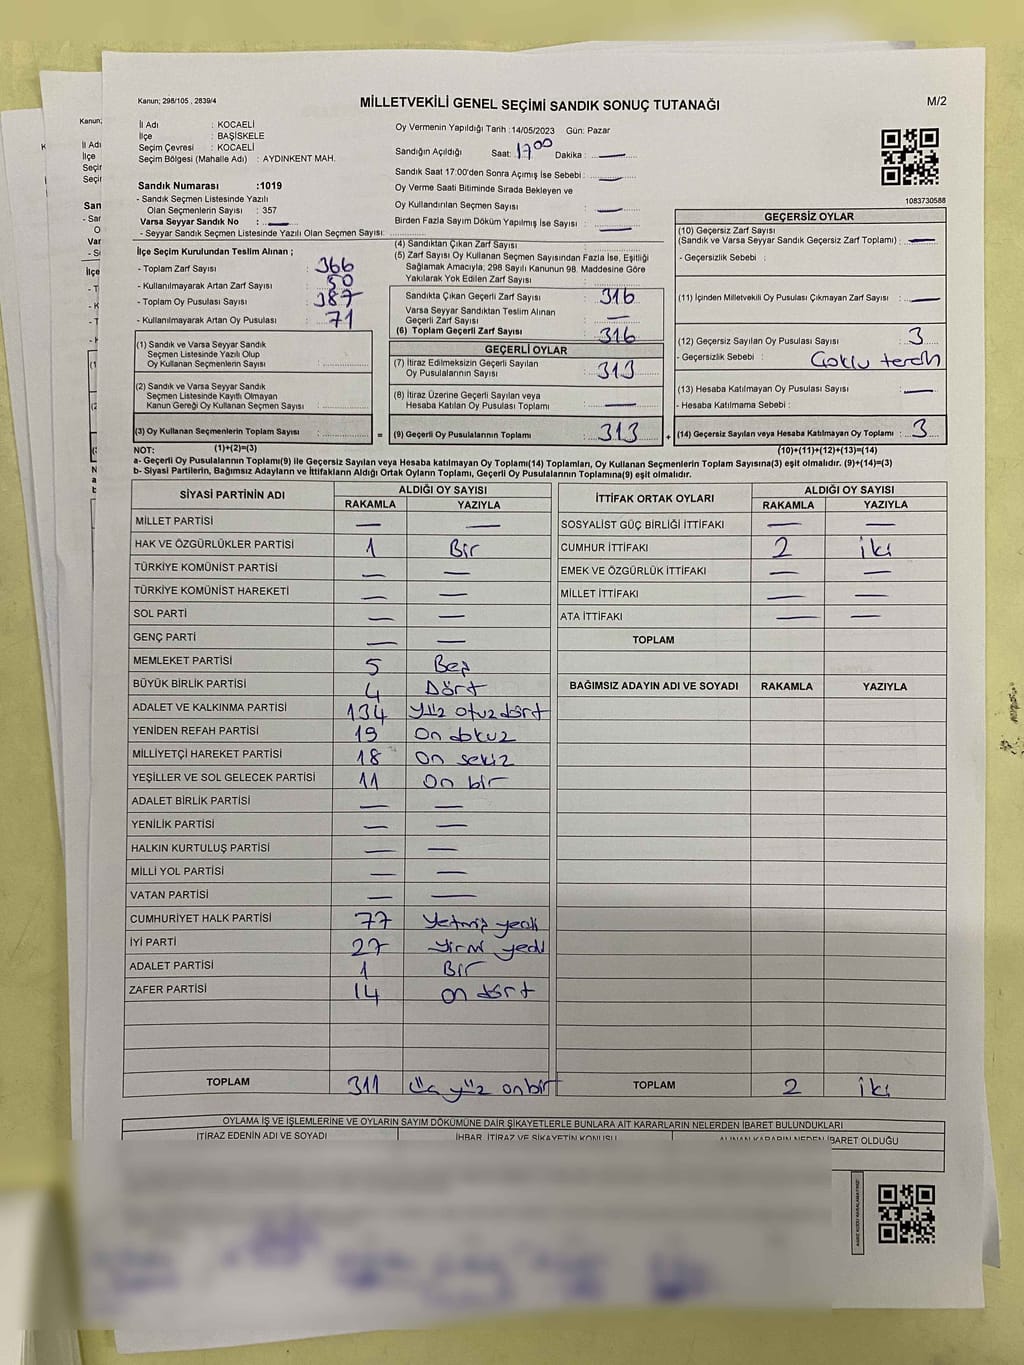 Kanun; 298/105 , 2839/4
MİLLETVEKİLİ GENEL SEÇİMİ SANDIK SONUÇ TUTANAĞI
M/2
İl Adı : KOCAELİ
İlçe : BAŞİSKELE
Seçim Çevresi : KOCAELİ
Seçim Bölgesi (Mahalle Adı) : AYDINKENT MAH.
Sandık Numarası :1019
- Sandık Seçmen Listesinde Yazılı
Olan Seçmenlerin Sayısı : 357
Varsa Seyyar Sandık No : —
- Seyyar Sandık Seçmen Listesinde Yazılı Olan Seçmen Sayısı:
Oy Vermenin Yapıldığı Tarih :14/05/2023 Gün: Pazar
Sandığın Açıldığı Saat: 17 00 Dakika : —
Sandık Saat 17:00'den Sonra Açılmış İse Sebebi : —
Oy Verme Saati Bitiminde Sırada Bekleyen ve
Oy Kullandırılan Seçmen Sayısı : —
Birden Fazla Sayım Döküm Yapılmış İse Sayısı : —
1083730588
İlçe Seçim Kurulundan Teslim Alınan ;
- Toplam Zarf Sayısı : 366
- Kullanılmayarak Artan Zarf Sayısı : 50
- Toplam Oy Pusulası Sayısı : 387
- Kullanılmayarak Artan Oy Pusulası : 71
(1) Sandık ve Varsa Seyyar Sandık
Seçmen Listesinde Yazılı Olup
Oy Kullanan Seçmenlerin Sayısı :
(2) Sandık ve Varsa Seyyar Sandık
Seçmen Listesinde Kayıtlı Olmayan
Kanun Gereği Oy Kullanan Seçmen Sayısı :
(3) Oy Kullanan Seçmenlerin Toplam Sayısı :
(4) Sandıktan Çıkan Zarf Sayısı :
(5) Zarf Sayısı Oy Kullanan Seçmen Sayısından Fazla İse, Eşitliği
Sağlamak Amacıyla; 298 Sayılı Kanunun 98. Maddesine Göre
Yakılarak Yok Edilen Zarf Sayısı :
Sandıkta Çıkan Geçerli Zarf Sayısı : 316
Varsa Seyyar Sandıktan Teslim Alınan
Geçerli Zarf Sayısı : —
(6) Toplam Geçerli Zarf Sayısı : 316
GEÇERLİ OYLAR
(7) İtiraz Edilmeksizin Geçerli Sayılan
Oy Pusulalarının Sayısı : 313
(8) İtiraz Üzerine Geçerli Sayılan veya
Hesaba Katılan Oy Pusulası Toplamı : —
= (9) Geçerli Oy Pusulalarının Toplamı : 313
GEÇERSİZ OYLAR
(10) Geçersiz Zarf Sayısı
(Sandık ve Varsa Seyyar Sandık Geçersiz Zarf Toplamı) : —
- Geçersizlik Sebebi :
(11) İçinden Milletvekili Oy Pusulası Çıkmayan Zarf Sayısı : —
(12) Geçersiz Sayılan Oy Pusulası Sayısı : 3
- Geçersizlik Sebebi : Çoklu tercih
(13) Hesaba Katılmayan Oy Pusulası Sayısı : —
- Hesaba Katılmama Sebebi :
+ (14) Geçersiz Sayılan veya Hesaba Katılmayan Oy Toplamı : 3
NOT: (1)+(2)=(3)
(10)+(11)+(12)+(13)=(14)
a- Geçerli Oy Pusulalarının Toplamı(9) ile Geçersiz Sayılan veya Hesaba katılmayan Oy Toplamı(14) Toplamları, Oy Kullanan Seçmenlerin Toplam Sayısına(3) eşit olmalıdır. (9)+(14)=(3)
b- Siyasi Partilerin, Bağımsız Adayların ve İttifakların Aldığı Ortak Oyların Toplamı, Geçerli Oy Pusulalarının Toplamına(9) eşit olmalıdır.
SİYASİ PARTİNİN ADI ALDIĞI OY SAYISI
RAKAMLA YAZIYLA
MİLLET PARTİSİ — —
HAK VE ÖZGÜRLÜKLER PARTİSİ 1 Bir
TÜRKİYE KOMÜNİST PARTİSİ — —
TÜRKİYE KOMÜNİST HAREKETİ — —
SOL PARTİ — —
GENÇ PARTİ — —
MEMLEKET PARTİSİ 5 Beş
BÜYÜK BİRLİK PARTİSİ 4 Dört
ADALET VE KALKINMA PARTİSİ 134 Yüz otuz dört
YENİDEN REFAH PARTİSİ 19 On dokuz
MİLLİYETÇİ HAREKET PARTİSİ 18 On sekiz
YEŞİLLER VE SOL GELECEK PARTİSİ 11 On bir
ADALET BİRLİK PARTİSİ — —
YENİLİK PARTİSİ — —
HALKIN KURTULUŞ PARTİSİ — —
MİLLİ YOL PARTİSİ — —
VATAN PARTİSİ — —
CUMHURİYET HALK PARTİSİ 77 Yetmiş yedi
İYİ PARTİ 27 Yirmi yedi
ADALET PARTİSİ 1 Bir
ZAFER PARTİSİ 14 On dört
TOPLAM 311 Üç yüz on bir
İTTİFAK ORTAK OYLARI ALDIĞI OY SAYISI
RAKAMLA YAZIYLA
SOSYALİST GÜÇ BİRLİĞİ İTTİFAKI — —
CUMHUR İTTİFAKI 2 iki
EMEK VE ÖZGÜRLÜK İTTİFAKI — —
MİLLET İTTİFAKI — —
ATA İTTİFAKI — —
TOPLAM
BAĞIMSIZ ADAYIN ADI VE SOYADI RAKAMLA YAZIYLA
TOPLAM 2 iki
OYLAMA İŞ VE İŞLEMLERİNE VE OYLARIN SAYIM DÖKÜMÜNE DAİR ŞİKAYETLERLE BUNLARA AİT KARARLARIN NELERDEN İBARET BULUNDUKLARI
İTİRAZ EDENİN ADI VE SOYADI İHBAR, İTİRAZ VE ŞİKAYETİN KONUSU ALINAN KARARIN NEDEN İBARET OLDUĞU